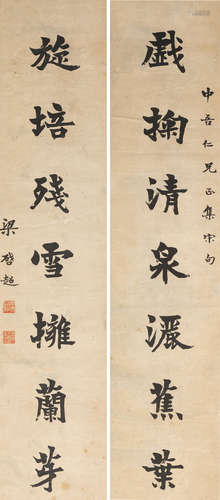 中吾仁兄正集宋句
戲掬清泉灑蕉葉
旋培殘雪擁蘭芽
梁啓超